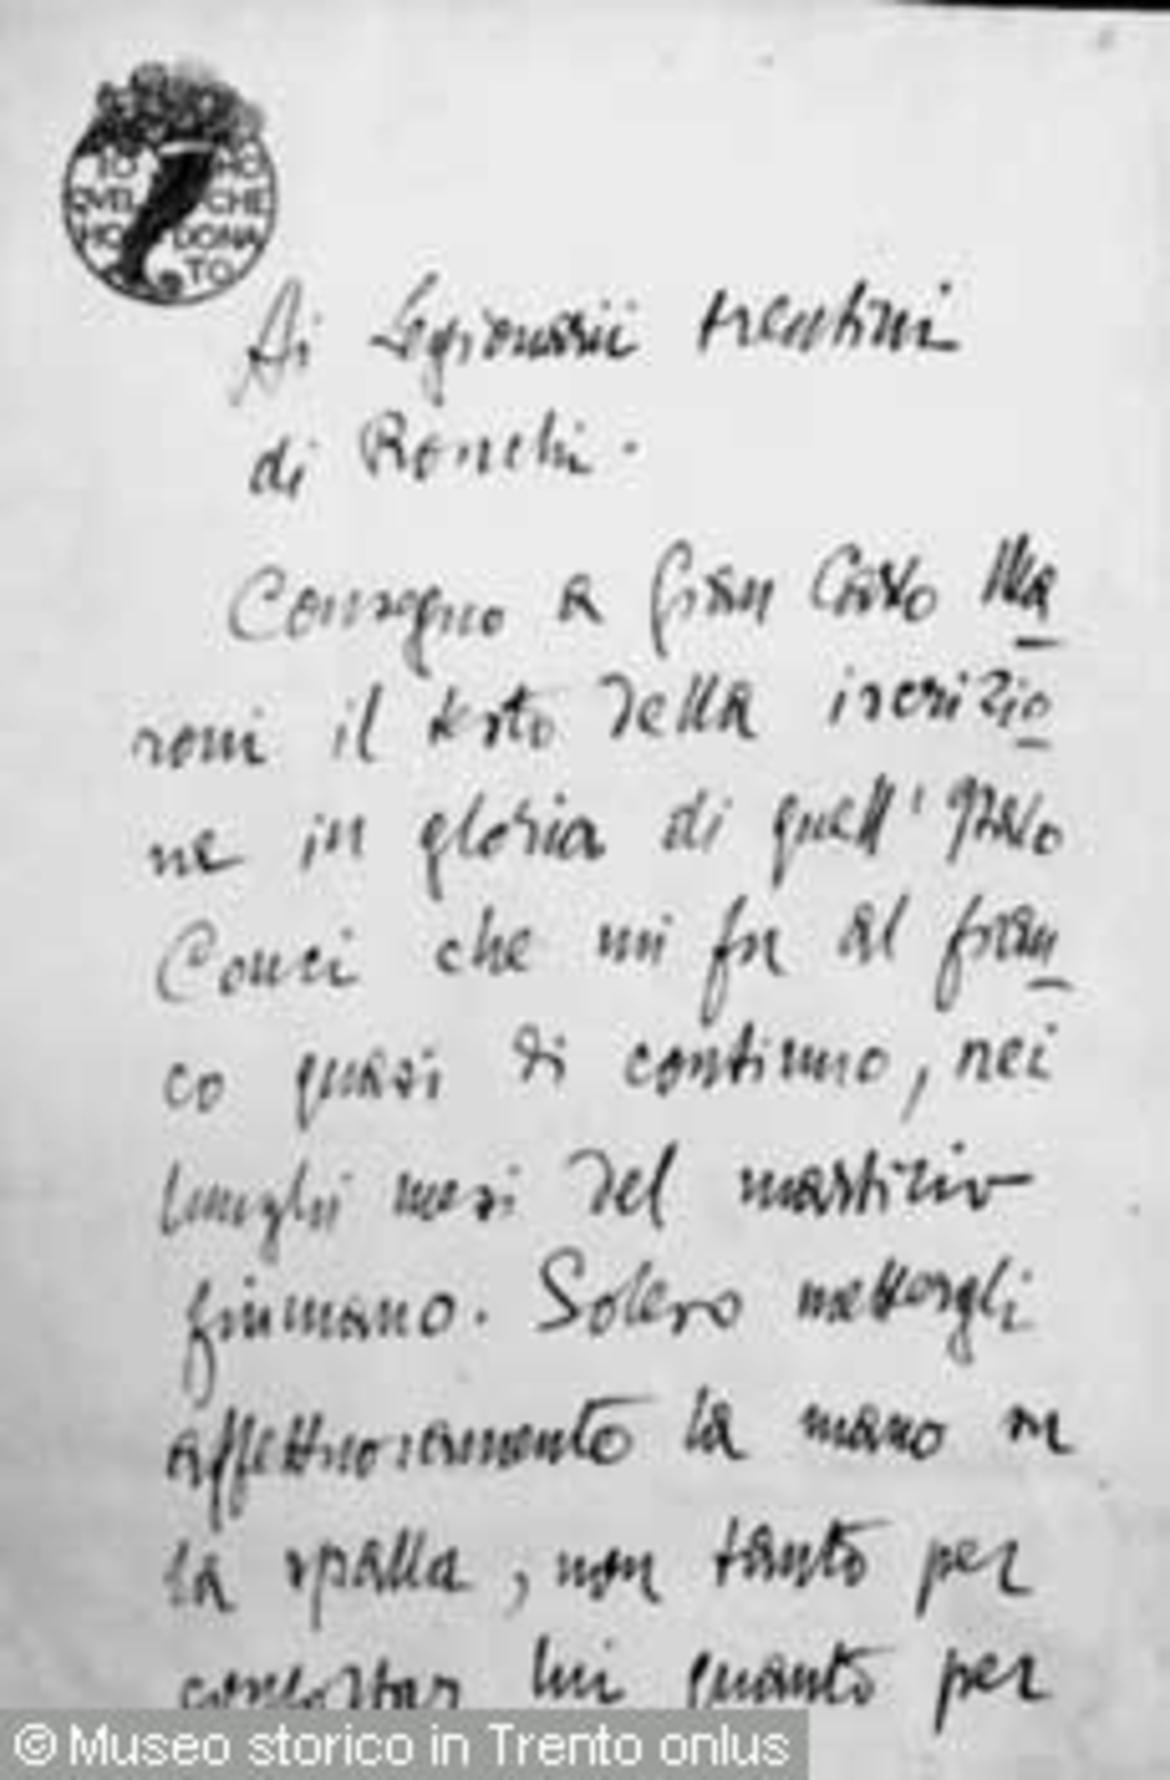 IO HO
QVEL CHE
HO DONA
TO
Ai Legionarii trentini
di Ronchi.
Consegno a Gian Carlo Ma
roni il testo della iscrizio
ne in gloria di quell'Italo
Conci che mi fu al fian
co quasi di continuo, nei
lunghi mesi del martirio
fiumano. Solevo mettergli
affettuosamente la mano su
la spalla, non tanto per
confortar lui quanto per
© Museo storico in Trento onlus